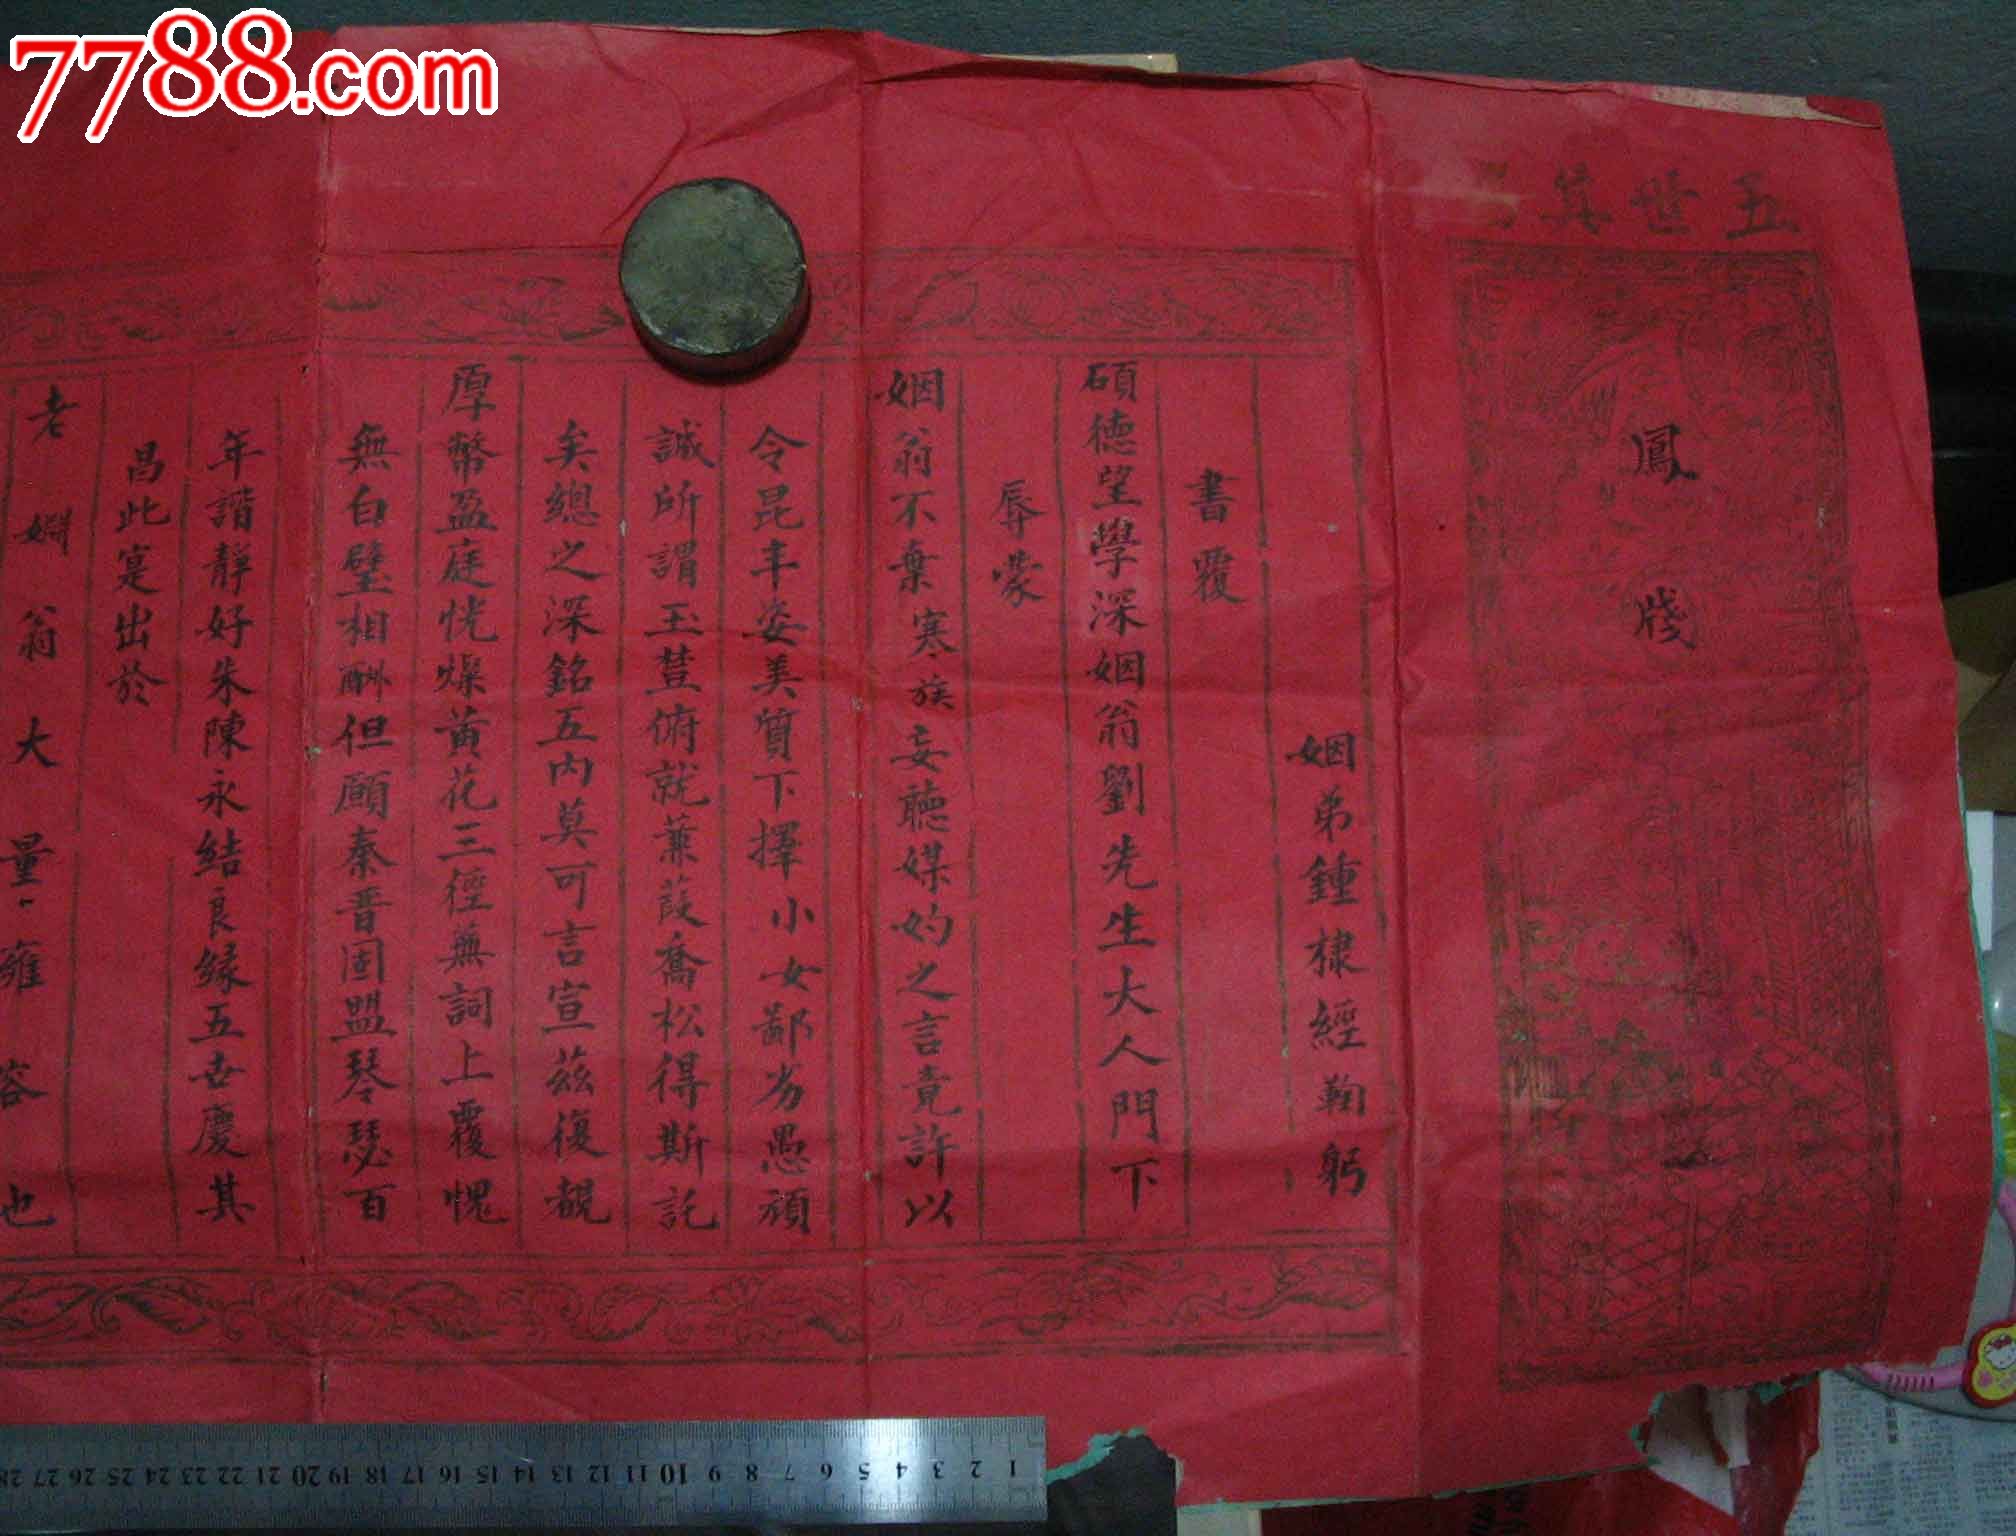 7788.com
五世其
鳳牋
姻弟鍾棣經鞠躬
書覆
碩德望學深姻翁劉先生大人門下
辱蒙
姻翁不棄寒族妄聽媒妁之言竟許以
令昆丰姿美質下擇小女鄙劣愚頑
誠所謂玉荳俯就蒹葭喬松得斯託
矣總之深銘五內莫可言宣茲復覩
厚幣盈庭恍燦黃花三徑蕪詞上覆愧
無白璧相酬但願秦晋固盟琴瑟百
年諧靜好朱陳永結良緣五世慶其
昌此寔出於
老姻翁大量雍容也
1 2 3 4 5 6 7 8 9 10 11 12 13 14 15 16 17 18 19 20 21 22 23 24 25 26 27 28